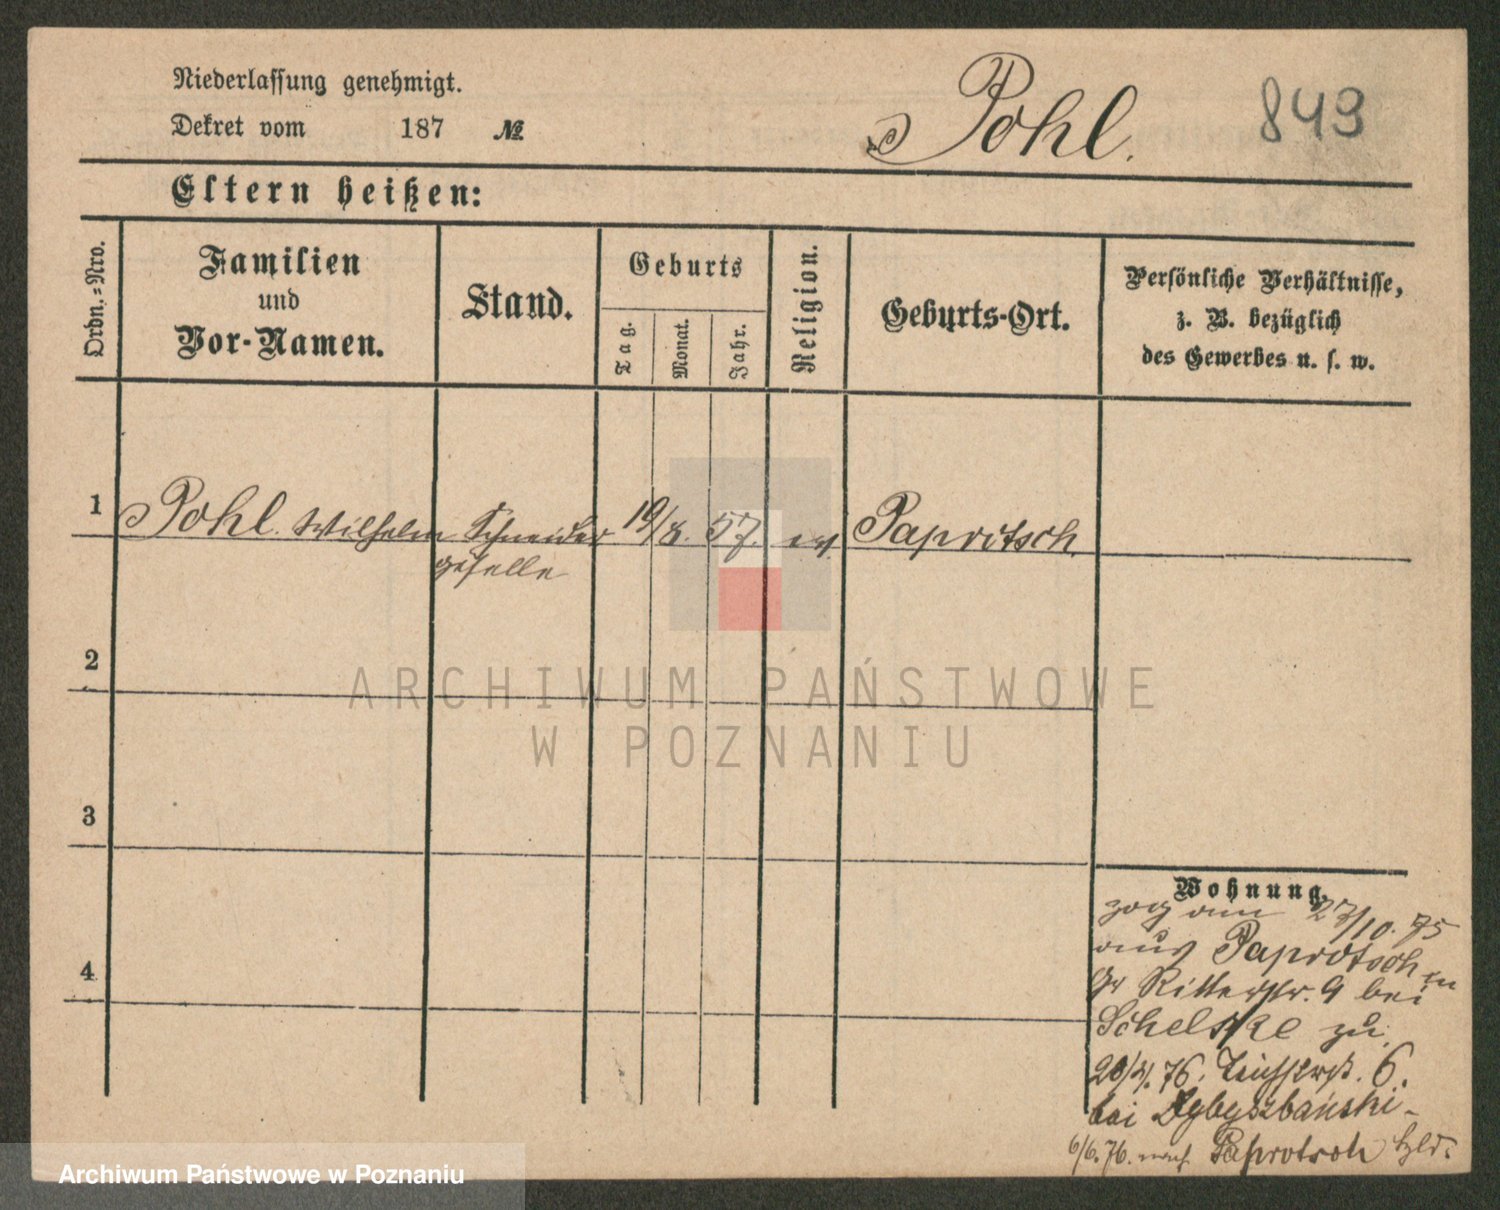 Niederlassung genehmigt.
Dekret vom 187 №
Pohl.
849
Eltern heißen:
Ordn.=Nro.
Familien
und
Vor-Namen.
Stand.
Geburts
Tag.
Monat.
Jahr.
Religion.
Geburts-Ort.
Persönliche Verhältnisse,
z. B. bezüglich
des Gewerbes u. s. w.
1 Pohl Wilhelm Schneider 19/8. 57. ev. Paprotsch
geselle
2
ARCHIWUM PAŃSTWOWE
W POZNANIU
3
Wohnung.
zog am 27/10. 75
aus Paprotsch in
4
Gr Ritterstr. 9 bei
Schelske zu.
76. 6.
bei
6/6. 76. nach Paprotsch
Archiwum Państwowe w Poznaniu